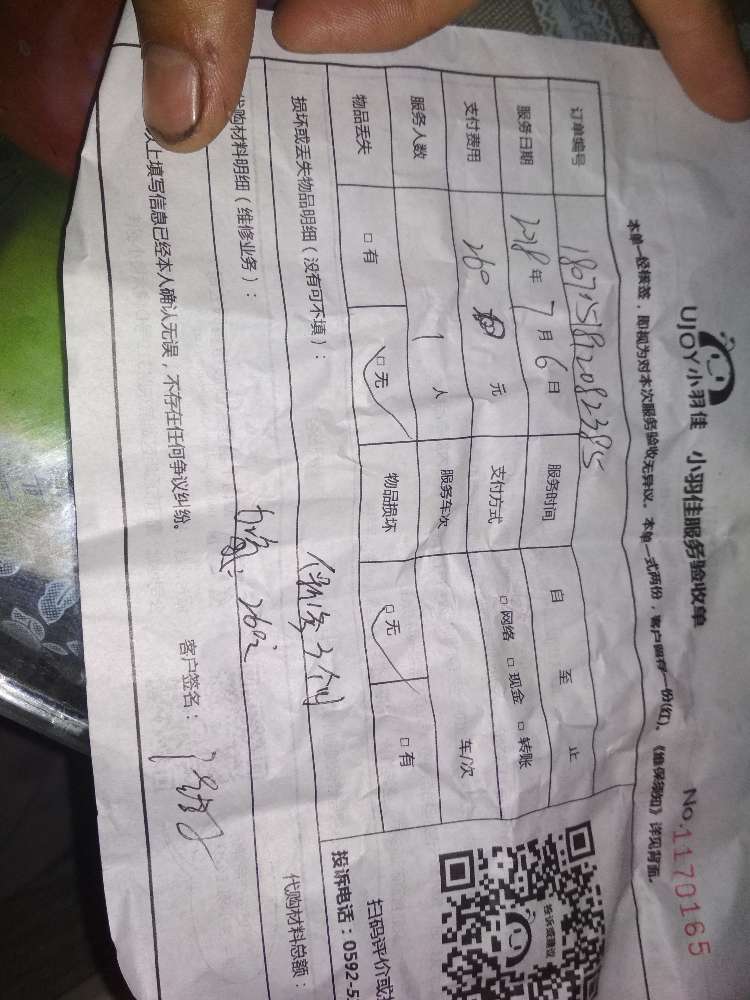 UJOY小羽佳 小羽佳服务验收单 No.1170165
本单一经核签，即视为对本次服务验收无异议。本单一式两份，客户留存一份(红)。《维保须知》详见背面。
订单编号
服务日期 2018年7月6日 服务时间 自 至 止
支付费用 260 元 支付方式 □网络 □现金 □转账
服务人数 1人 服务车次 车/次
物品丢失 □有 □无 物品损坏 □无 □有
损坏或丢失物品明细（没有可不填）：
代购材料明细（维修业务）： 代购材料总额：
以上填写信息已经本人确认无误，不存在任何争议纠纷。 客户签名：
投诉或建议
扫码评价或
投诉电话：0592-5